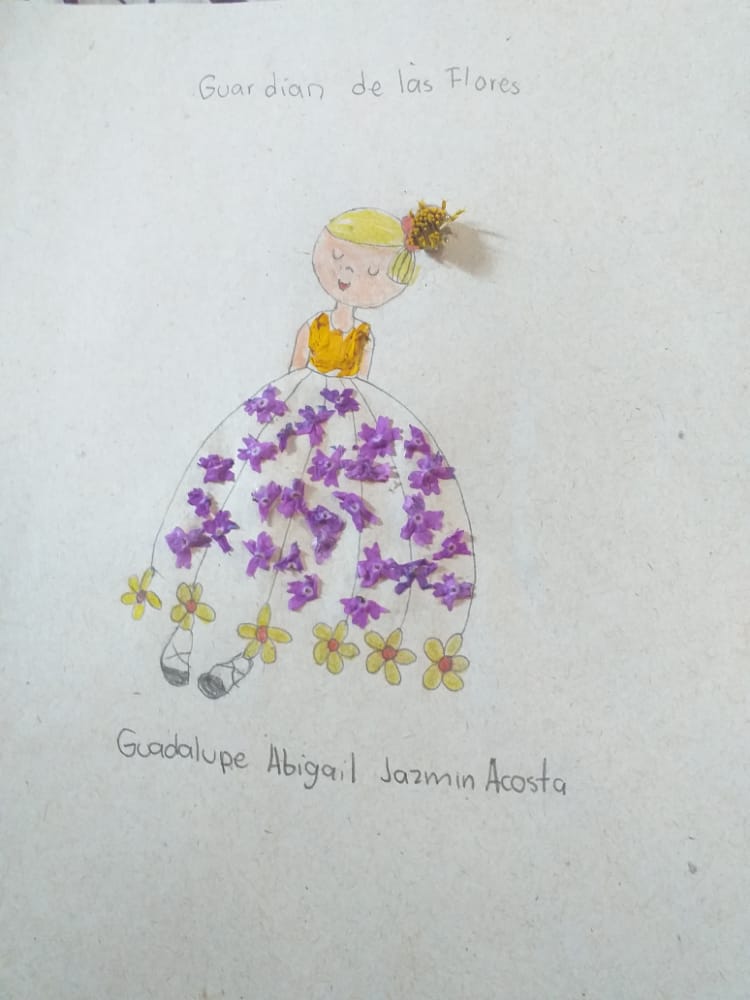 Guardian de las Flores
Guadalupe Abigail Jazmin Acosta